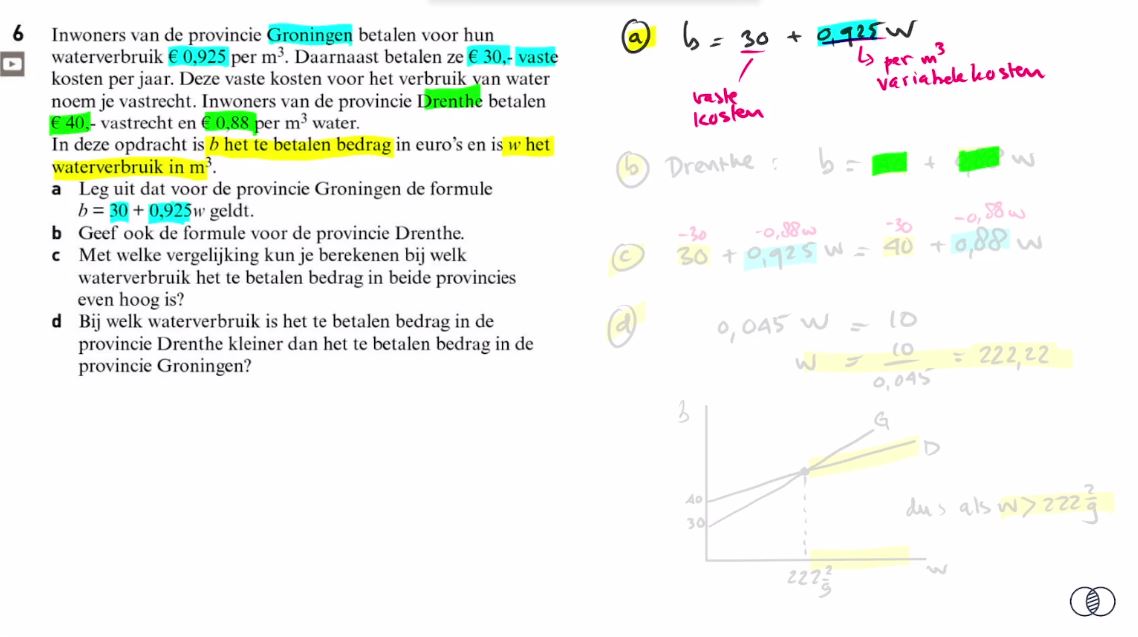 6 Inwoners van de provincie Groningen betalen voor hun
waterverbruik € 0,925 per m³. Daarnaast betalen ze € 30,- vaste
kosten per jaar. Deze vaste kosten voor het verbruik van water
noem je vastrecht. Inwoners van de provincie Drenthe betalen
€ 40,- vastrecht en € 0,88 per m³ water.
In deze opdracht is b het te betalen bedrag in euro's en is w het
waterverbruik in m³.
a Leg uit dat voor de provincie Groningen de formule
b = 30 + 0,925w geldt.
b Geef ook de formule voor de provincie Drenthe.
c Met welke vergelijking kun je berekenen bij welk
waterverbruik het te betalen bedrag in beide provincies
even hoog is?
d Bij welk waterverbruik is het te betalen bedrag in de
provincie Drenthe kleiner dan het te betalen bedrag in de
provincie Groningen?
a b = 30 + 0,925 w
vaste
kosten
per m³
variabele kosten
b Drenthe: b = + w
-30 -0,88w -30 -0,88w
c 30 + 0,925 w = 40 + 0,88 w
d 0,045 w = 10
w = 10/0,045 = 222,22
b
G
D
40
30
222 2/9
w
dus als w > 222 2/9